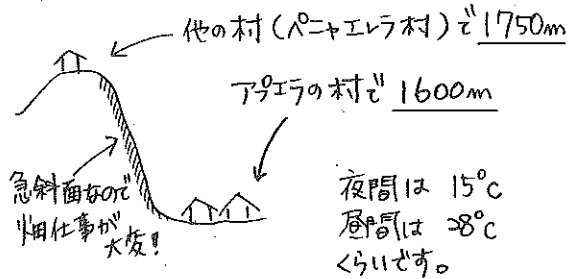 他の村(ペニャエレラ村)で 1750m
アプエラの村で 1600m
急斜面なので
畑仕事が
大変!
夜間は 15℃
昼間は 28℃
くらいです。